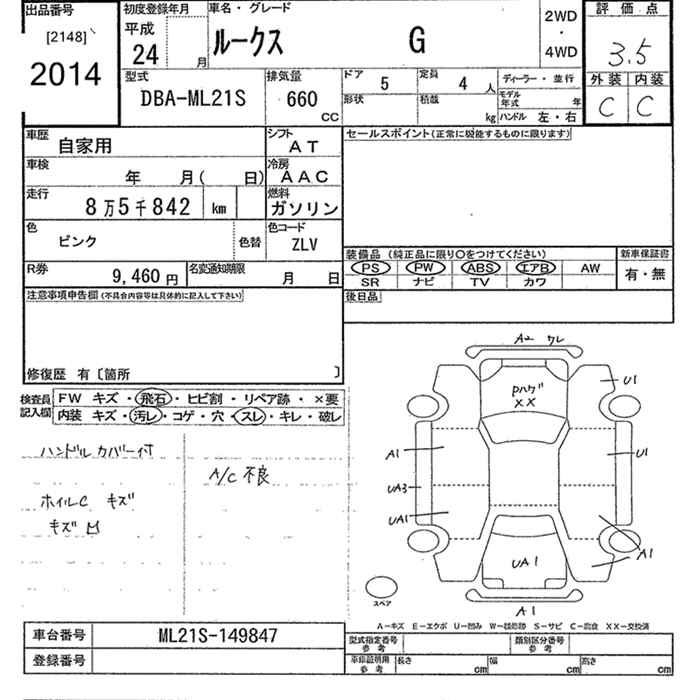 出品番号
[2148]
2014
初度登録年月
平成
24 月
車名・グレード
ルークス G
2WD
・
4WD
評価点
3.5
外装 内装
C C
型式
DBA-ML21S
排気量
660
CC
ドア 5
定員 4 人
形状
積載 kg
ディーラー・並行
モデル年式 年
ハンドル 左・右
車歴
自家用
シフト
AT
車検
年 月( 日)
冷房
AAC
走行
8万5千842 km
燃料
ガソリン
色
ピンク
色替
色コード
ZLV
R券
9,460 円
名変通知期限
月 日
セールスポイント(正常に機能するものに限ります)
装備品 (純正品に限り○をつけてください)
PS PW ABS エアB AW
SR ナビ TV カワ
新車保証書
有・無
後日品
注意事項申告欄(不具合内容等は具体的に記入して下さい)
修復歴 有〔箇所 〕
検査員記入欄
FW キズ・飛石・ヒビ割・リペア跡・×要
内装 キズ・汚レ・コゲ・穴・スレ・キレ・破レ
ハンドルカバー付
A/C 不良
ホイルC キズ
キズ凹
A2 ワレ
Pハゲ
XX
U1
A1
U1
UA3
UA1
A1
UA1
A1
スペア
A-キズ E-エクボ U-凹み W-補修跡 S-サビ C-腐食 XX-交換済
車台番号
ML21S-149847
登録番号
型式指定番号
参考
類別区分番号
参考
車庫証明用
参考
長さ cm
幅 cm
高さ cm